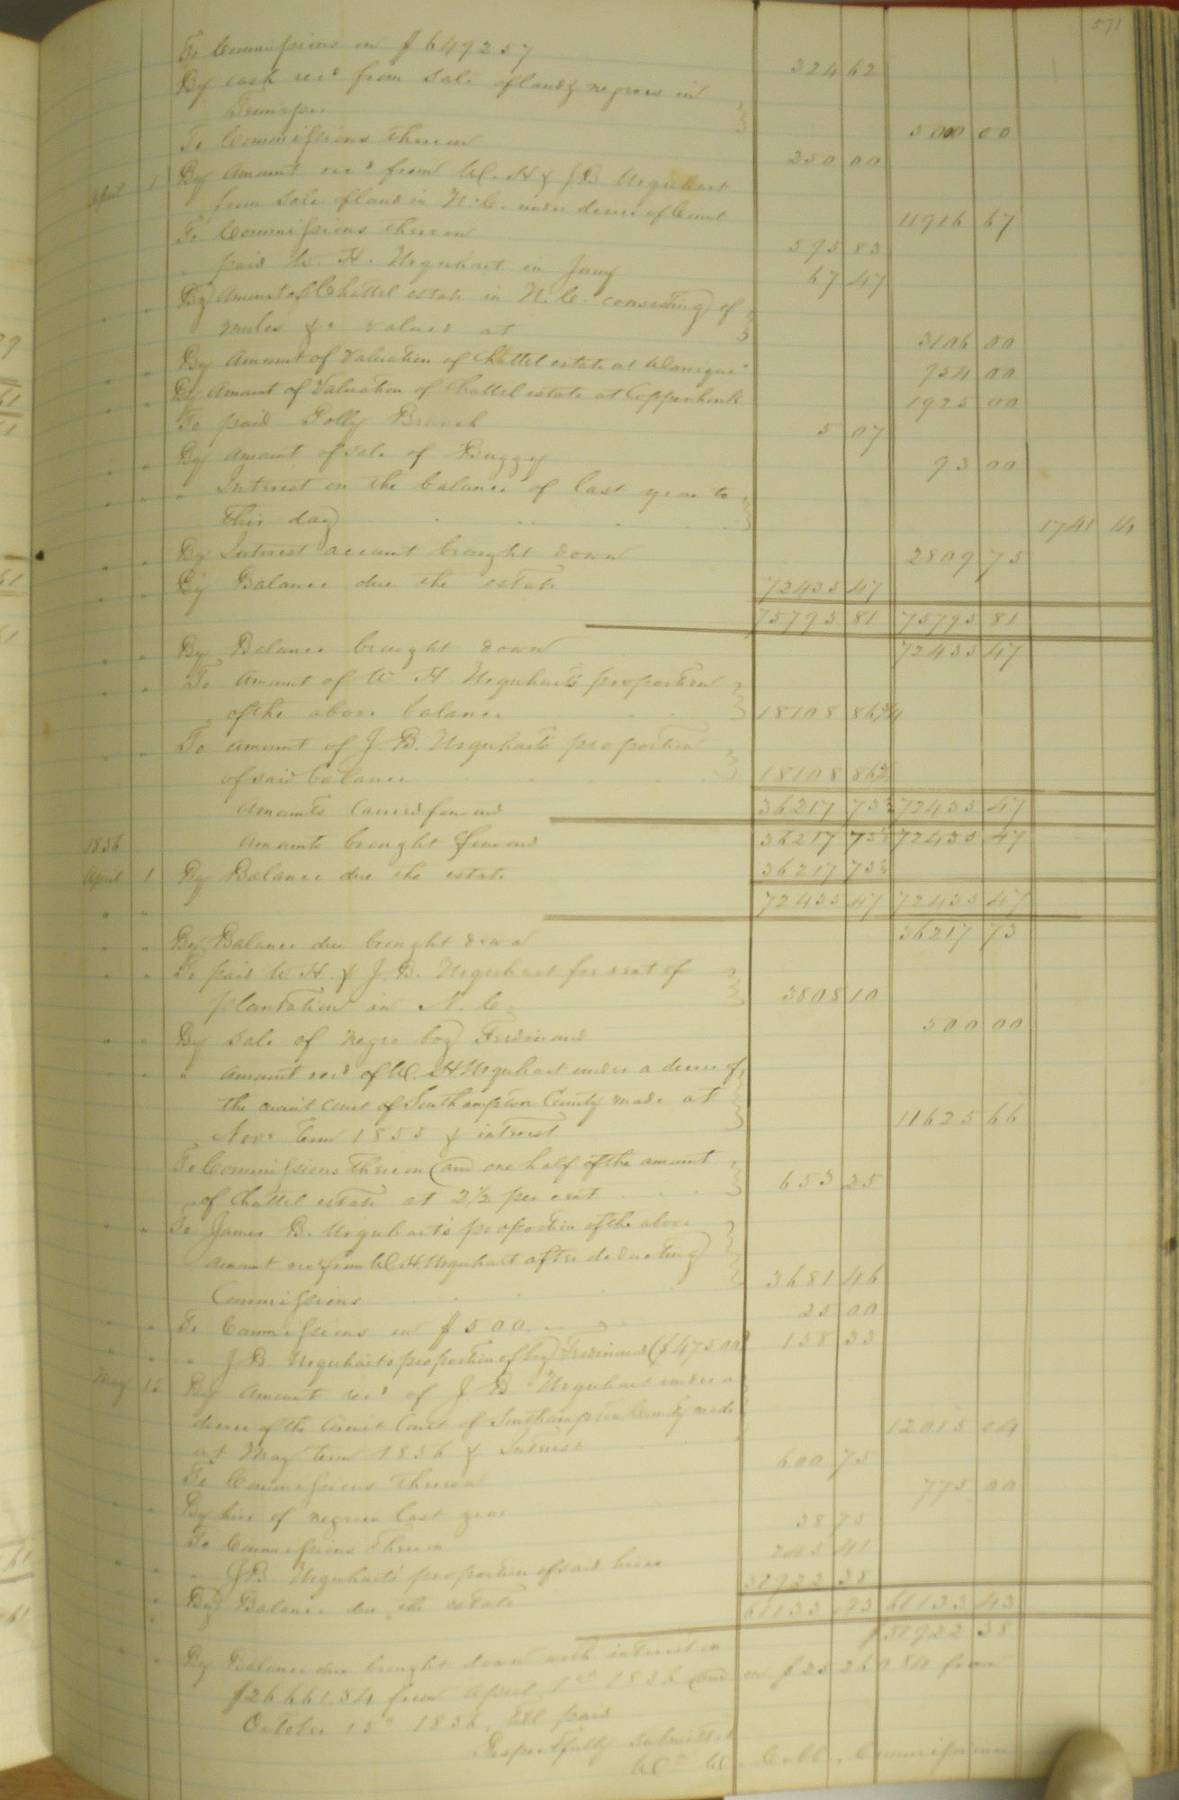 571
To Commissions on $6492 57 324 62
By cash recd from sale of land & negroes in
Tennessee 5000 00
To Commissions thereon 250 00
April 1 By Amount recd from W. H & J B Urquhart
from sale of land in N. C. under decree of Court 11916 67
To Commissions thereon 595 83
" paid W. H. Urquhart in Jany 67 47
" " By Amount of Chattel estate in N. C. consisting of
mules &c valued at 3106 00
" " By Amount of Valuation of Chattel estate at 954 00
" " By Amount of Valuation of Chattel estate at Copperhonk 1925 00
" " To paid Polly Branch 5 07
" " By amount of sale of Buggy 93 00
" " " Interest on the balance of last year to
this day 1741 14
" " By Interest account brought down 2809 75
" " By Balance due the estate 72435 47
75795 81 75795 81
" " By Balance brought down 72435 47
" " To Amount of W H Urquhart's proportion
of the above balance 18108 86¾
" " To amount of J. B. Urquhart's proportion
of said balance 18108 86¾
Amounts carried forward 36217 73½ 72435 47
1856 Amounts brought forward 36217 73½ 72435 47
April 1 By Balance due the estate 36217 73½
" " 72435 47 72435 47
" " By Balance due brought down 36217 73
" " To paid W. H. & J. B. Urquhart for rent of
plantation in N. C. 3808 10
" " By sale of negro boy Ferdinand 500 00
" " " Amount recd of W. H. Urquhart under a decree of
the circuit court of Southampton County made at
Novr term 1855 & interest 11625 66
To Commissions thereon (and one half of the amount
of Chattel estate at 2½ per cent 653 25
" " To James B. Urquhart's proportion of the above
amount rec from W. H. Urquhart after deducting
Commissions 3681 46
" " To Commissions on $500 25 00
" " " J. B. Urquhart's proportion of boy Ferdinand ($475 00) 158 33
May 15 By Amount recd of J B Urquhart under a
decree of the Circuit Court of Southampton County made
at May term 1856 & Interest 12015 04
" " To Commissions thereon 600 75
" " By hire of negroes last year 775 00
" " To Commissions thereon 38 75
" " " J B Urquhart's proportion of said hires 245 41
" " By Balance due the estate 51922 38
61133 43 61133 43
" " By Balance due brought down with interest on $51922 38
$26661.54 from April 1st 1856 and on $25260 84 from
October 15th 1856, till paid
Respectfully submitted
Wm W. Cobb, Commissioner